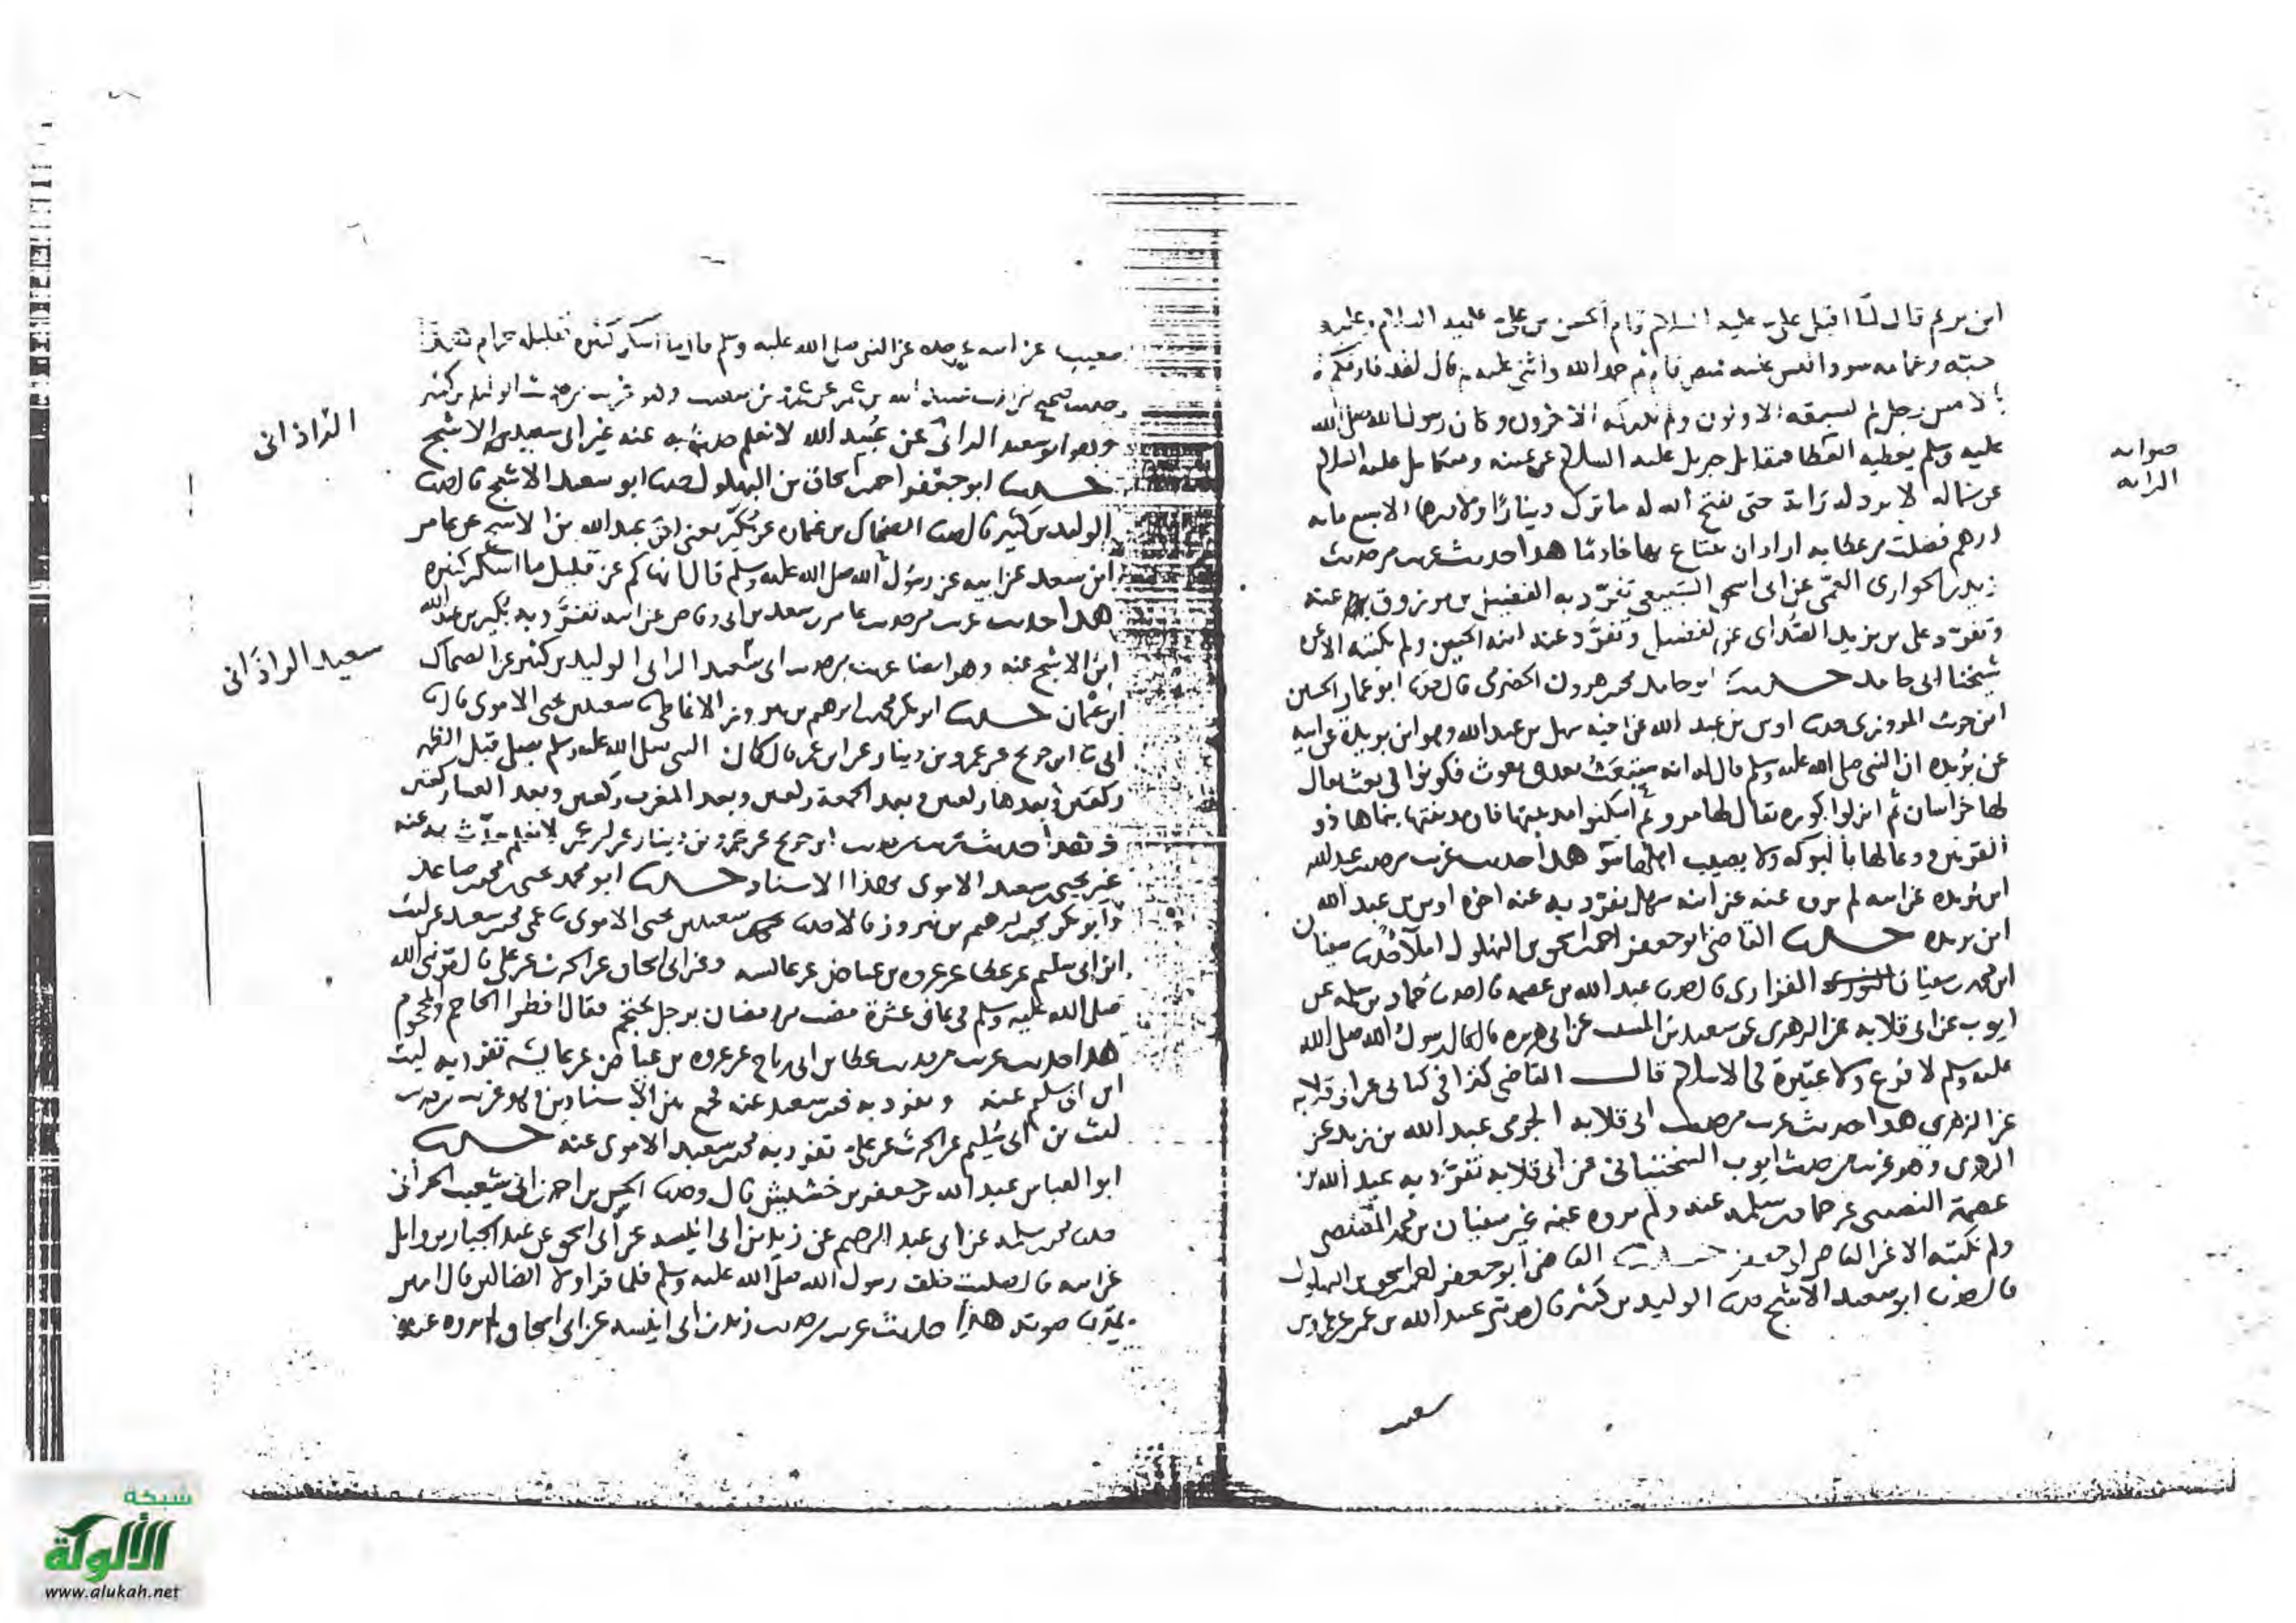 ابن مريم قال لما اقبل علي عليه السلام قام الحسن بن علي عليه السلام وعليه
جبة وعمامة سوداء ليس عليه قميص ثم حمد الله واثنى عليه ثم قال لقد فارقكم
بالامس رجل لم يسبقه الاولون ولم يدركه الاخرون وكان رسول الله صلى الله
عليه وسلم يعطيه فيقاتل جبريل عليه السلام عن يمينه وميكايل عليه السلام
عن شماله لا يرد له راية حتى يفتح الله له ما ترك دينارا ولا درهما الا سبع مايه
درهم فضلت من عطايه اراد ان يبتاع بها خادما هذا حديث غريب من حديث
زيد الحواري العمي عن ابي اسحق السبيعي تفرد به الفضيل بن مرزوق عنه
وتفرد علي بن يزيد الصداى عن الفضيل وتفرد عنه ابنه الحسين ولم نكتبه الا عن
شيخنا ابي حامد حدثنا ابو حامد محمد هرون الحضرمي قال حدثنا ابو عمار الحسين
ابن حريث المروزي حدثنا اوس بن عبد الله عن اخيه سهل بن عبد الله وهو ابن بريدة عن ابيه
عن بريده ان النبي صلى الله عليه وسلم قال له انه ستبعث بعدي بعوث فكونوا في بعث يقال
لها خراسان ثم انزلوا كوره يقال لها مرو ثم اسكنوا مدينتها فان مدينتها بناها ذو
القرنين ودعا لها بالبركه ولا يصيب اهلها سوء هذا حديث غريب من حديث عبد الله
ابن بريده عن ابيه لم يروه عنه عن ابنه سهل تفرد به عنه اخوه اوس بن عبد الله
ابن بريده حدثنا القاضي ابو جعفر احمد اسحق بن البهلول املآ حدثنا سفيان
ابن محمد سفيان الفزاري قال حدثنا عبد الله بن عصمه قال حدثنا حماد بن سلمه عن
ايوب عن ابي قلابه عن الزهري عن سعيد بن المسيب عن ابي هريره قال قال رسول الله صلى الله
عليه وسلم لا فرع ولا عتيرة في الاسلام قال القاضي كذا في كتابي عن ابي قلابه
عن الزهري هذا حديث غريب من حديث ابي قلابه الجرمي عبد الله بن زيد عن
الزهري وهو غريب من حديث ايوب السختياني عن ابي قلابه تفرد به عبد الله بن
عصمة النصيبي عن حماد بن سلمه عنه ولم يروه عنه غير سفيان بن محمد المصيصي
ولم نكتبه الا عن القاضي ابي جعفر حدثنا القاضي ابو جعفر احمد اسحق بن البهلول
قال حدثنا ابو سعيد الاشج حدثنا الوليد بن كثير قال حدثني عبد الله بن عمر عن عمرو بن
شعيب
صوابه
الرايه
شعيب عن ابيه عن جده عن النبي صلى الله عليه وسلم قال ما اسكر كثيره فقليله حرام
حديث صحيح من حديث عبيد الله بن عمر عن عمرو بن شعيب وهو غريب من حديث الوليد بن كثير
وهو ابو سعيد الرانى عن عبيد الله لا نعلم حدث به عنه غير ابي سعيد الاشج
حدثنا ابو جعفر احمد اسحاق بن البهلول حدثنا ابو سعيد الاشج قال حدثنا
الوليد بن كثير قال حدثنا الضحاك بن عثمان عن بكير يعني ابن عبد الله بن الاشج عن عامر
ابن سعد عن ابيه عن رسول الله صلى الله عليه وسلم قال انهاكم عن قليل ما اسكر كثيره
هذا حديث غريب من حديث عامر بن سعد بن ابي وقاص عن ابيه تفرد به بكير بن عبد الله
ابن الاشج عنه وهو ايضا غريب من حديث ابي سعيد الرانى الوليد بن كثير عن الضحاك
ابن عثمان حدثنا ابو بكر محمد ابرهيم بن نيروز الانماطي ثنا سعيد بن يحيى الاموي قال حدثنا
ابي ثنا ابن جريج عن عمرو بن دينار عن ابن عمر قال كان النبي صلى الله عليه وسلم يصلي قبل الظهر
ركعتين وبعدها ركعتين وبعد الجمعة ركعتين وبعد المغرب ركعتين وبعد العشا ركعتين
وهذا حديث غريب من حديث ابن جريج عن عمرو بن دينار عن ابن عمر لا نعلم حدث به عنه
غير يحيى سعيد الاموي بهذا الاسناد حدثنا ابو محمد يحيى محمد صاعد
وابو بكر محمد ابرهيم بن نيروز قالا حدثنا سعيد بن يحيى الاموي ثنا عمي محمد سعيد عن ليث
ابن ابي سليم عن عطا عن عروه بن عياض عن عايشه وعن ابي اسحاق عن الحرث عن علي قال مر نبي الله
صلى الله عليه وسلم في ثماني عشرة مضت من رمضان برجل يحتجم فقال افطر الحاجم والمحجوم
هذا حديث غريب من حديث عطا بن ابي رباح عن عروه بن عياض عن عايشه تفرد به ليث
ابن ابي سليم عنه وتفرد به محمد سعيد عنه فجمع بين الاسنادين وهو غريب من حديث
ليث بن ابي سليم عن الحرث عن علي تفرد به محمد سعيد الاموي عنه حدثنا
ابو العباس عبد الله بن جعفر بن خشيش قال وحدثنا الحسن بن احمد ابي شعيب الحراني
حدثنا محمد سلمه عن ابي عبد الرحيم عن زيد بن ابي انيسه عن ابي اسحق عن عبد الجبار بن وايل
عن ابيه قال صليت خلف رسول الله صلى الله عليه وسلم فلما قرا ولا الضالين قال امين
يمد بها صوته هذا حديث غريب من حديث زيد بن ابي انيسه عن ابي اسحاق لم يروه عنه
الراذانى
سعيد الراذانى
شبكة
الألوكة
www.alukah.net